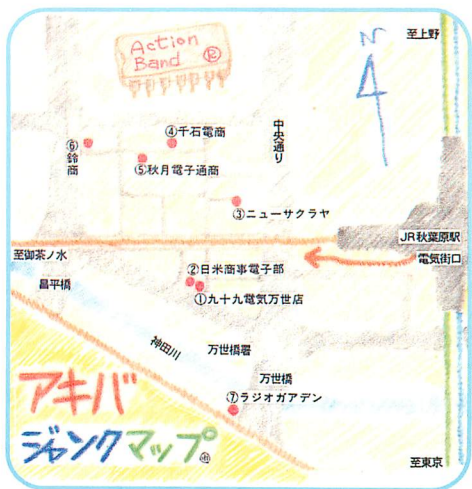 Action
Band ®
N
至上野
中央通り
④千石電商
⑥鈴商
⑤秋月電子通商
③ニューサクラヤ
JR秋葉原駅
電気街口
至御茶ノ水
②日米商事電子部
昌平橋
①九十九電気万世店
神田川
万世橋署
万世橋
⑦ラジオガアデン
アキバ
ジャンクマップ
至東京